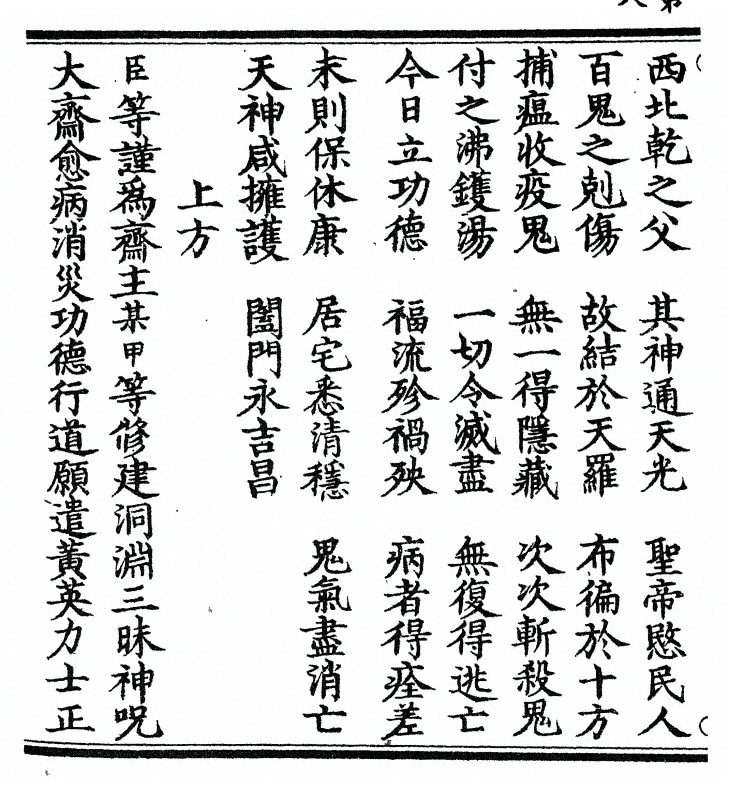 西北乾之父　其神通天光　聖帝愍民人
百鬼之剋傷　故結於天羅　布徧於十方
捕瘟收疫鬼　無一得隱藏　次次斬殺鬼
付之沸鑊湯　一切令滅盡　無復得逃亡
今日立功德　福流殄禍殃　病者得痊差
末則保休康　居宅悉清穩　鬼氣盡消亡
天神咸擁護　闔門永吉昌
上方
臣等謹為齋主某甲等修建洞淵三昧神呪
大齋愈病消災功德行道願遣黃英力士正